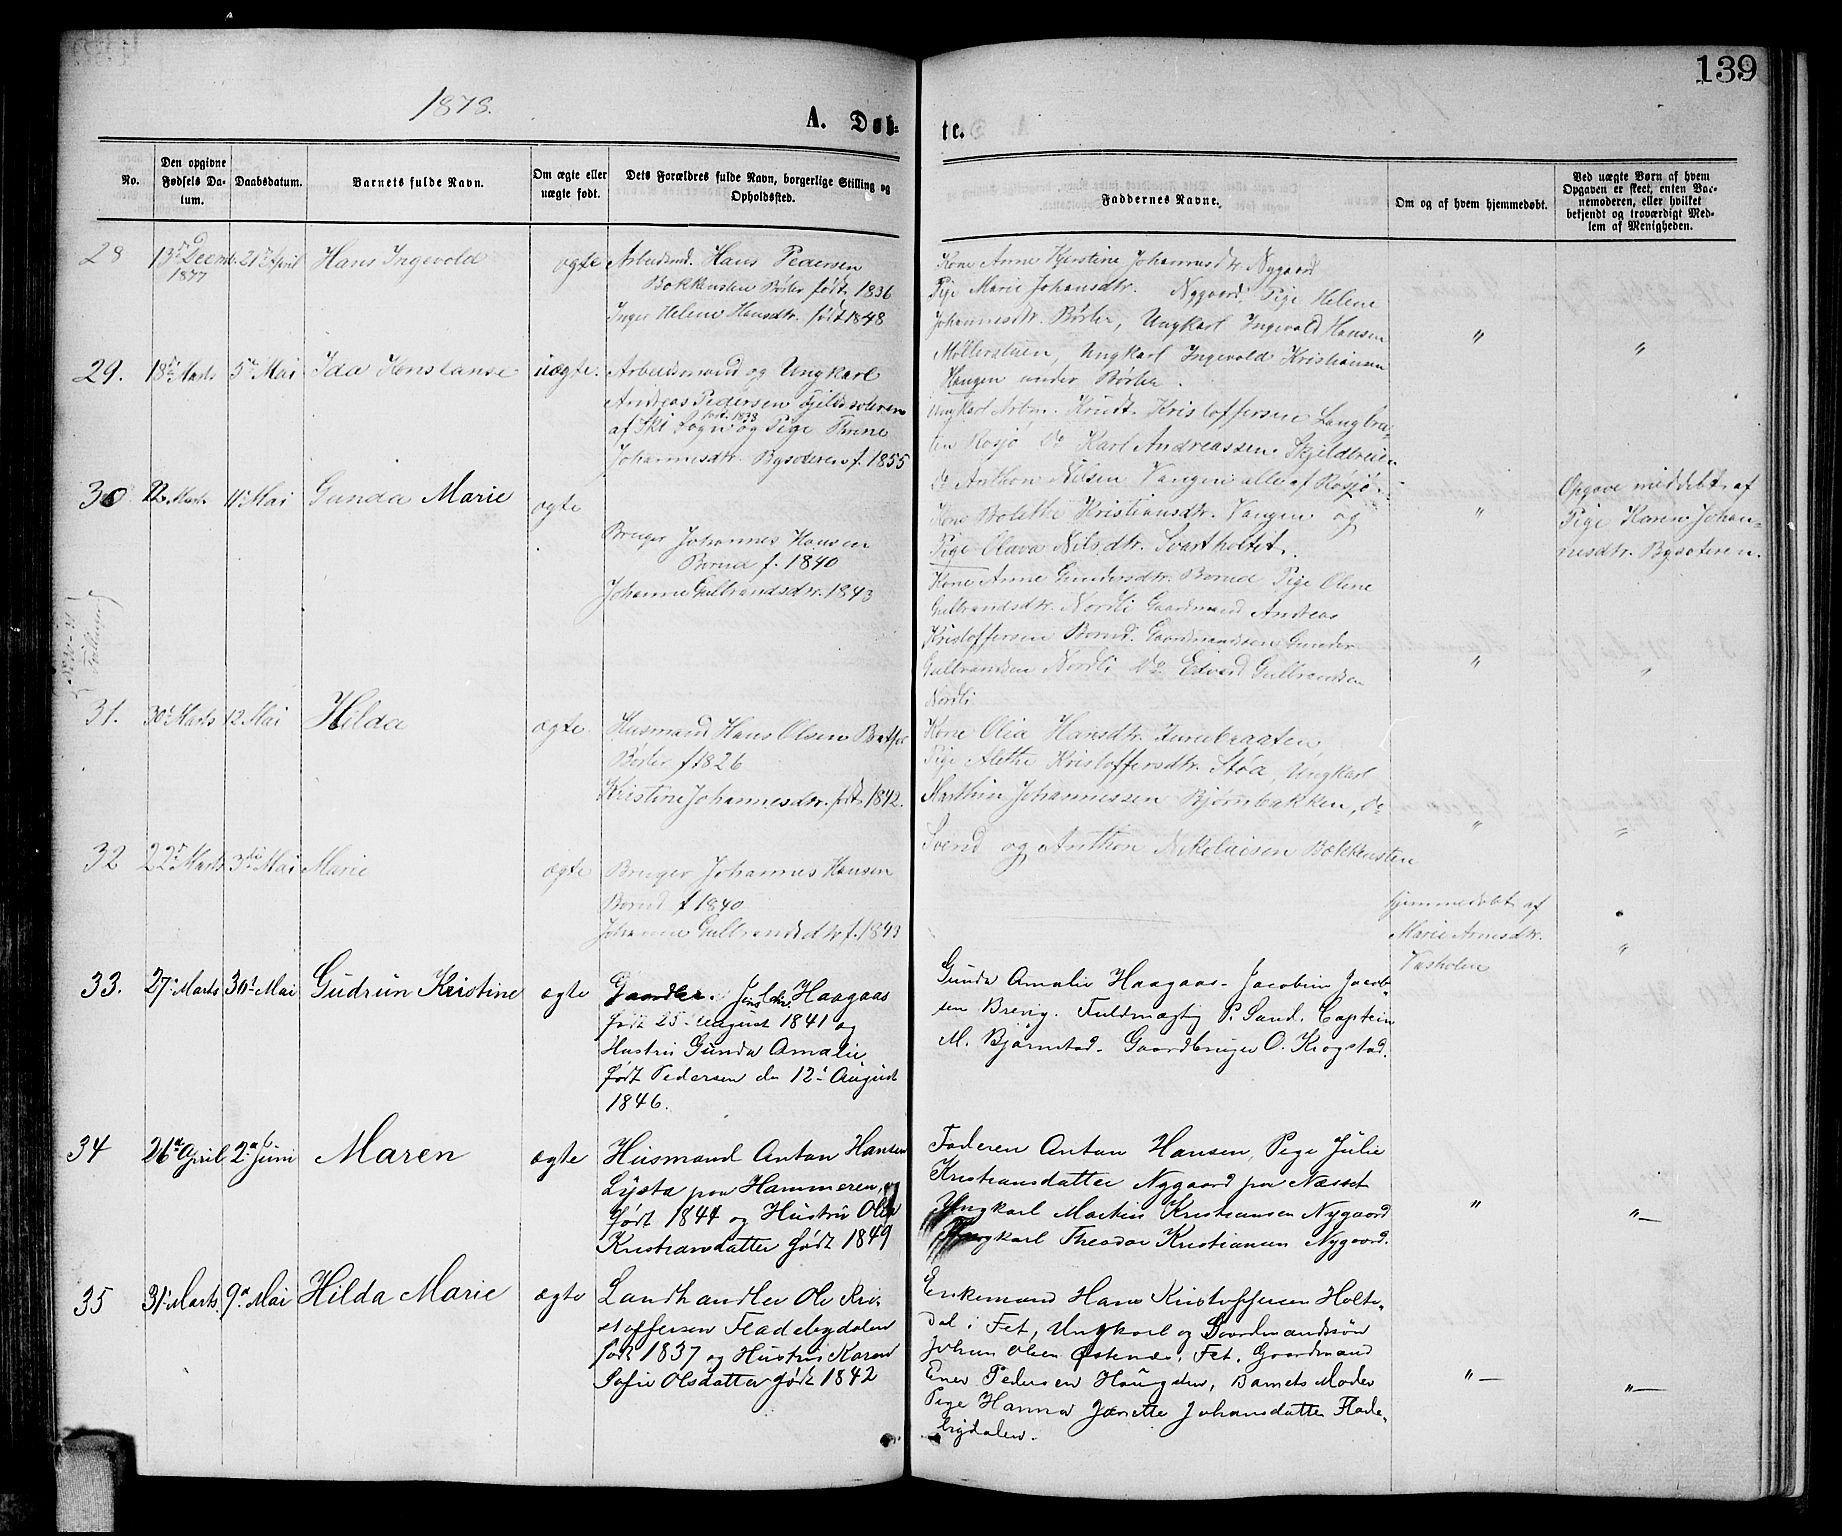 139
1878.
A. Døb-
te.
No.
Den opgivne Fødsels Da-tum.
Daabsdatum.
Barnets fulde Navn.
Om ægte eller uægte født.
Dets Forældres fulde Navn, borgerlige Stilling og Opholdssted.
Faddernes Navne.
Om og af hvem hjemmedøbt.
Ved uægte Børn af hvem Opgaven er skeet, enten Bar-nemoderen, eller hvilket bekjendt og troværdigt Med-lem af Menigheden.
28
13de Decmb. 1877
21de April
Hans Ingevold
ægte
Arbeidsmd. Hans Pedersen
Bokkensten Børter født 1836
Inger Helene Hansdtr. født 1848
Kone Anne Kjerstine Johannesdtr Nygaard
Pige Marie Johansdtr. Nygaard, Pige Helene
Johannesdtr. Børter, Ungkarl Ingevold Hansen
Møllerstuen, Ungkarl Ingevold Kristiansen
Haugen under Børter.
"
"
29.
18de Marts
5te Mai
Ida Konstanse
uægte.
Arbeidsmand og Ungkarl
Andreas Pedersen
af Ski Sogn født 1838 og Pige Thrine
Johannesdtr. Bysoteren f. 1855
Ungkarl Arbm. Knudt Kristoffersen Langbraa-
ten Rosjø Do Karl Andreassen
Do Anthon Nilsen Vangen alle af Rosjø.
Kone Bolette Kristiansdtr. Vangen og
Pige Olava Nilsdtr. Svartholtet.
"
Opgave meddelt af
Pige Karen Johan-
nesdtr. Bysoteren.
30
22 Marts
11te Mai
Gunda Marie
ægte
Bruger Johannes Hansen
Borud f. 1840
Johanne Gulbrandsdtr. 1843
Kone Anne Gundersdtr. Borud Pige Oline
Gulbrandsdtr. Nordli Gaardmand Andreas
Kristoffersen Borud. Gaardmandssøn Gunder
Gulbrandsen Nordli Do Edvard Gulbrandsen
Nordli
"
"
No 32
Tvillinger
31.
30te Marts
12 Mai
Hilda
ægte.
Husmand Hans Olsen
Børter f 1826
Kristine Johannesdtr. født 1842.
Kone Olia Hansdtr. Furubraaten
Pige Alethe Kristoffersdtr. Støa, Ungkarl
Marthin Johannessen Bjørnbakken, Do
Svend og Anthon Nikolaisen Bækkensten
"
"
32
22de Marts
3die Mai
Marie
ægte
Bruger Johannes Hansen
Borud f 1840
Johanne Gulbrandsdtr f. 1843
Hjemmedøbt af
Marie Arnesdtr.
Vasholen
"
33.
27de Marts
30te Mai
Gudrun Kristine
ægte
Haagaas
født 25 August 1841 og
Hustru Gunda Amalie
født Pedersen den 12te August
1846.
Gunda Amalie Haagaas. Jacobine Jacob-
sen Brevig. Fuldmægtig P. Sand. Captein
M. Bjørnstad. Gaardbruger O. Krogstad.
34
26de April
2den Juni
Maren
ægte
Husmand Anton Hansen
Lysta paa Hammeren, og
født 1844 og Hustru Olia
Kristiansdatter født 1849
Faderen Anton Hansen, Pige Julie
Kristiansdatter Nygaard paa Næsset
Ungkarl Martin Kristiansen Nygaard
Ungkarl Theodor Kristiansen Nygaard.
"
"—
35
31te Marts.
9de Mai
Hilda Marie
ægte
Landhandler Ole Kri-
stoffersen Fladebydalen
født 1837 og Hustru Karen
Sofie Olsdatter født 1842
Enkemand Hans Kristoffersen Holte-
dal i Fet, Ungkarl og Gaardmandssøn
Johan Olsen Østenes, Fet. Gaardmand
Ener Pedersen Haugdem, Barnets Moder
Pige Hanna Janette Johansdatter Flade-
bydalen.
"—
"—